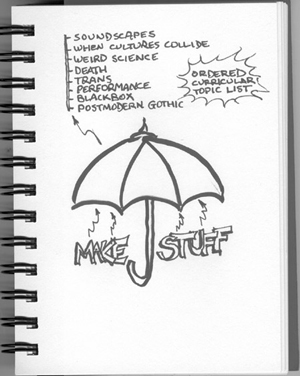 SOUNDSCAPES
WHEN CULTURES COLLIDE
WEIRD SCIENCE
DEATH
TRANS
PERFORMANCE
BLACKBOX
POSTMODERN GOTHIC
ORDERED
CURRICULAR
TOPIC LIST
MAKE STUFF